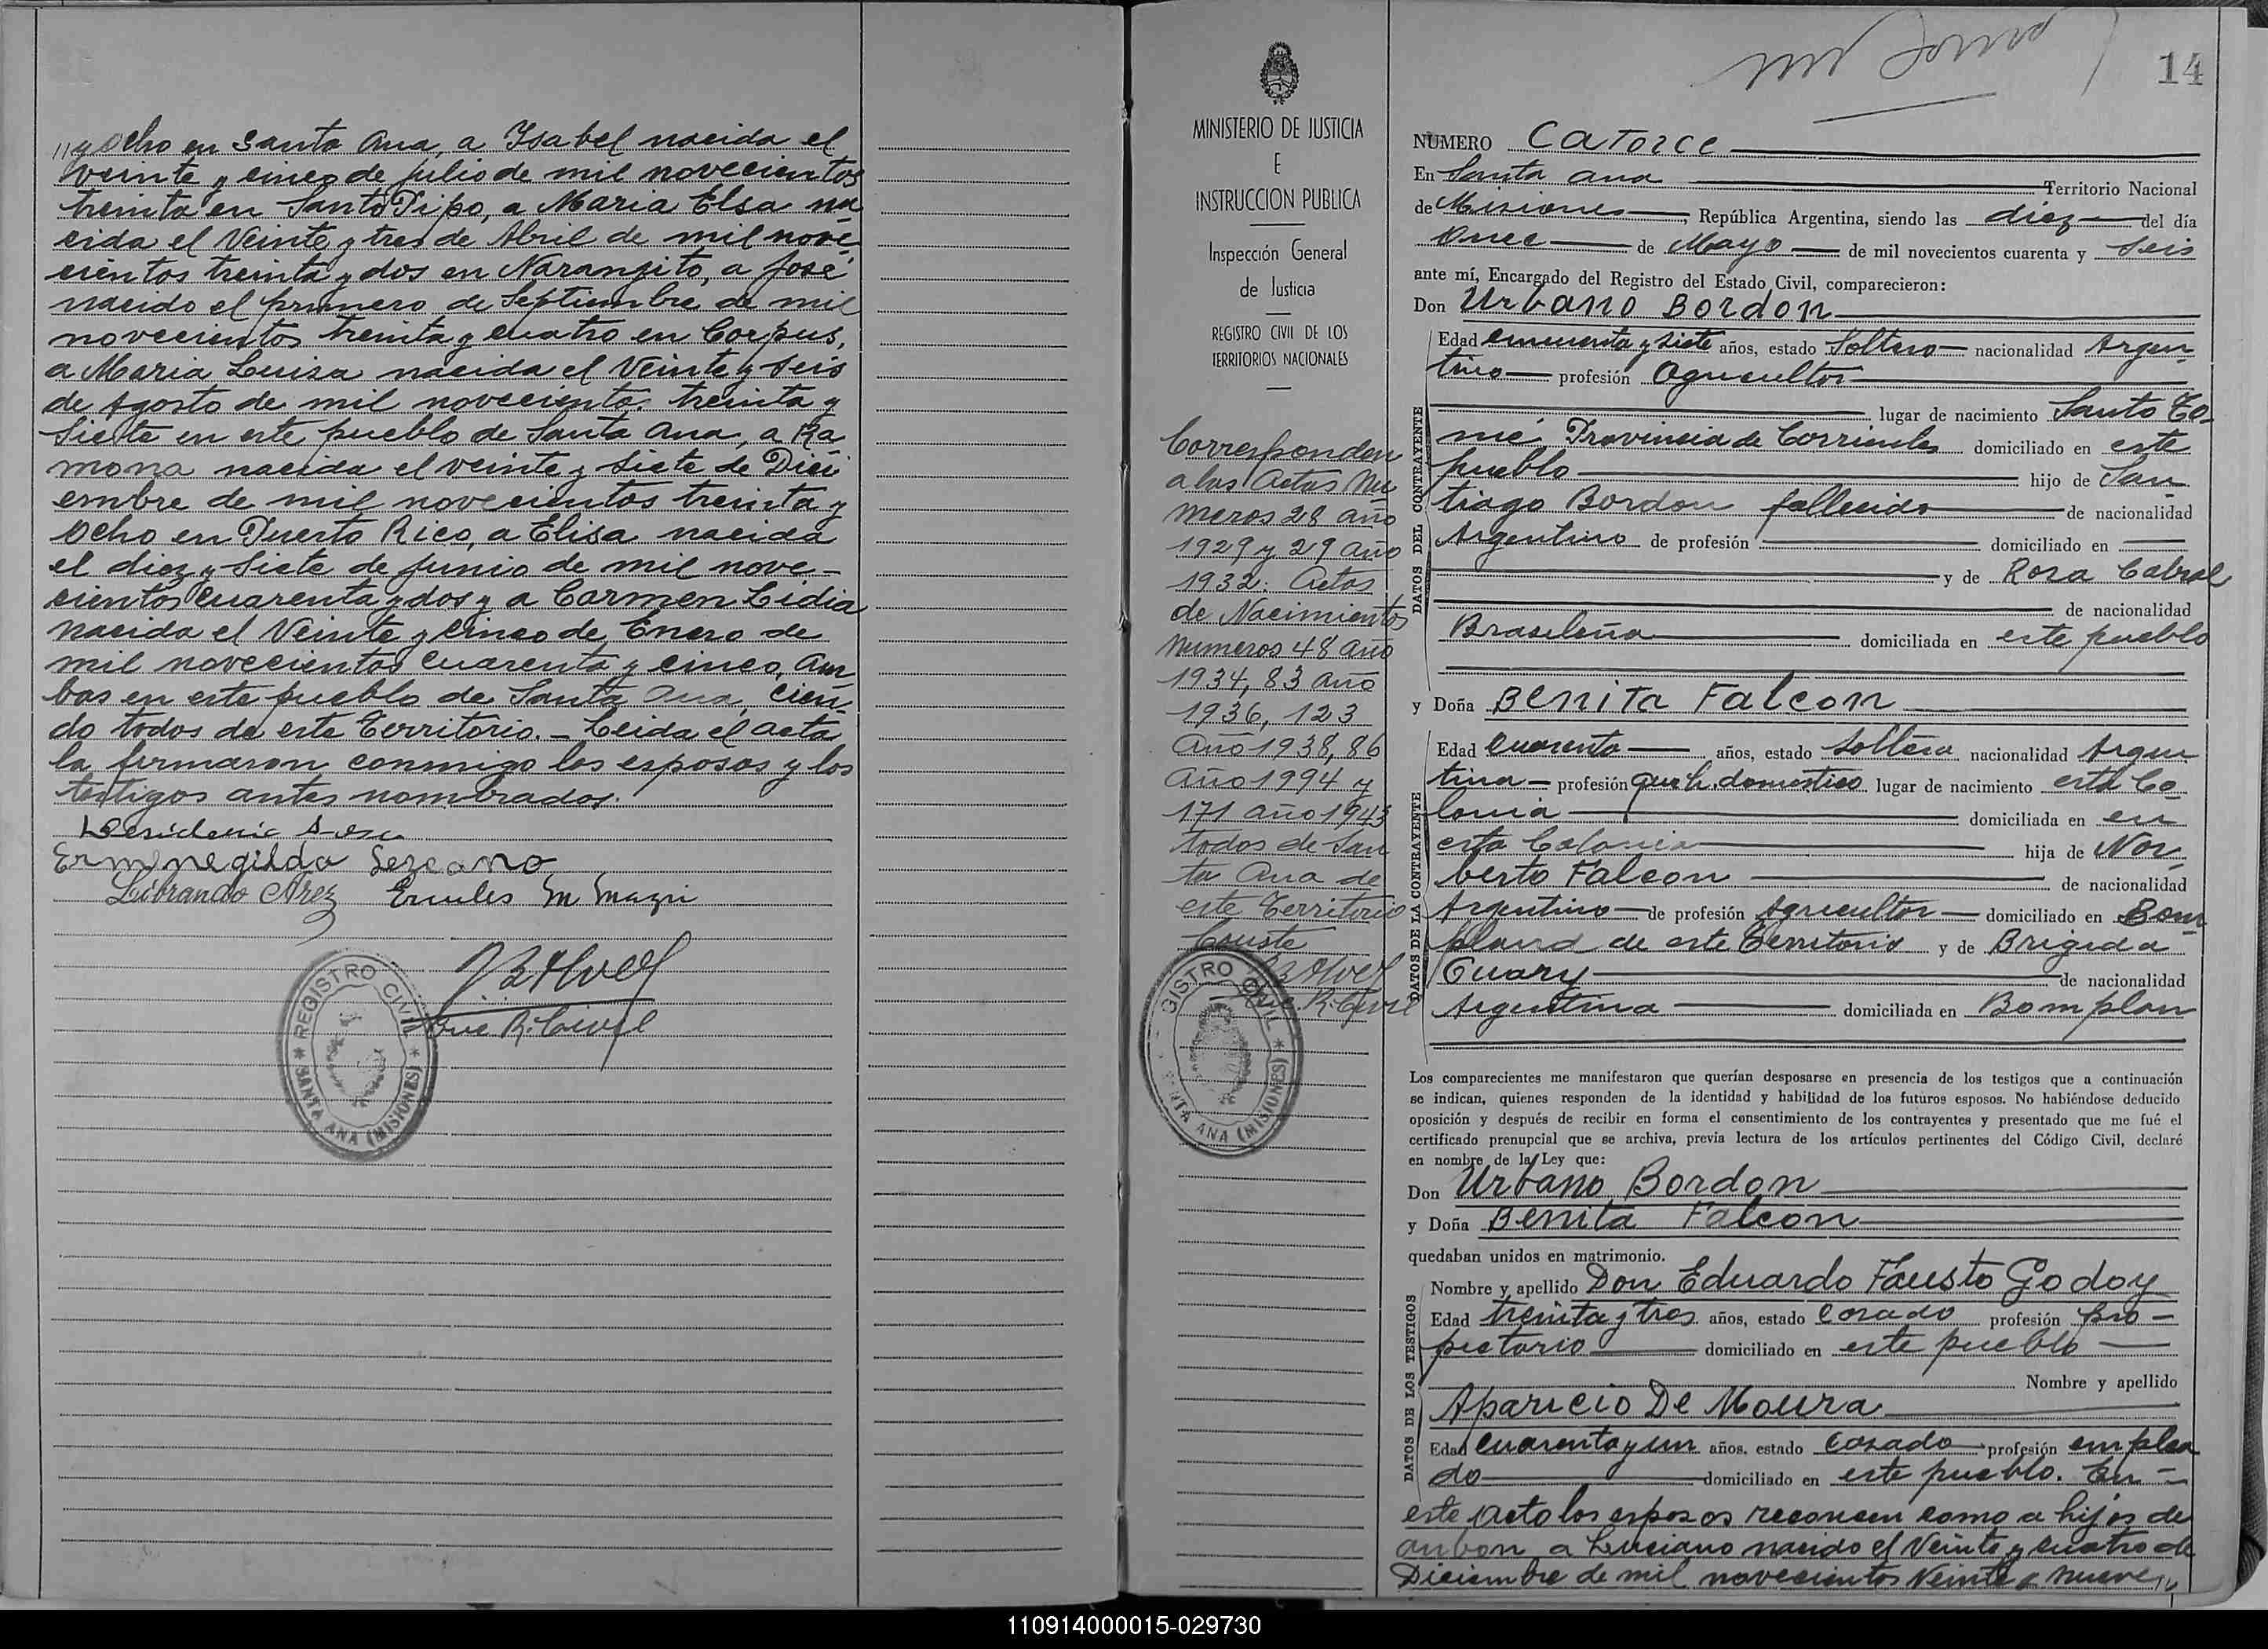 y ocho en Santa Ana, a Ysabel nacida el
veinte y cinco de Julio de mil novecientos
treinta en Santo Pipo, a Maria Elsa na
cida el Veinte y tres de Abril de mil nove
cientos treinta y dos en Naranjito, a José
nacido el primero de Septiembre de mil
novecientos treinta y cuatro en Corpus,
a Maria Luisa nacida el Veinte y Seis
de Agosto de mil novecientos treinta y
Siete en este pueblo de Santa Ana, a Ra
mona nacida el veinte y Siete de Dici
embre de mil novecientos treinta y
Ocho en Puerto Rico, a Elisa nacida
el diez y Siete de Junio de mil nove-
cientos cuarenta y dos y a Carmen Lidia
nacida el Veinte y Cinco de Enero de
mil novecientos cuarenta y cinco, am
bas en este pueblo de Santa Ana, Cien
do todos de este Territorio.- Leida el acta
la firmaron conmigo los esposos y los
testigos antes nombrados.
Erminegilda Lezcano
Librando Arez Ercules M
Enc R. Civil
REGISTRO CIVIL
SANTA ANA (MISIONES)
MINISTERIO DE JUSTICIA
E
INSTRUCCION PUBLICA
Inspección General
de Justicia
REGISTRO CIVIL DE LOS
TERRITORIOS NACIONALES
Corresponden
a las Actas Nu
meros 28 año
1929 y 29 año
1932: Actas
de Nacimientos
Numeros 48 año
1934, 83 año
1936, 123
Año 1938, 86
Año 1994 y
171 año 1943
todos de San
ta Ana de
este Territorio
Conste
R. Civil
REGISTRO CIVIL
SANTA ANA (MISIONES)
14
NUMERO Catorce
En Santa Ana Territorio Nacional
de Misiones, República Argentina, siendo las diez del día
Once de Mayo de mil novecientos cuarenta y Seis
ante mí, Encargado del Registro del Estado Civil, comparecieron:
Don Urbano Bordon
DATOS DEL CONTRAYENTE
Edad cincuenta y siete años, estado Soltero nacionalidad Argen
tino profesión Agricultor
lugar de nacimiento Santo To-
mé Provincia de Corrientes domiciliado en este
pueblo hijo de San
tiago Bordon fallecido de nacionalidad
Argentino de profesión domiciliado en
y de Rosa Cabral
de nacionalidad
Brasileña domiciliada en este pueblo
y Doña Benita Falcon
DATOS DE LA CONTRAYENTE
Edad Cuarenta años, estado Soltera nacionalidad Argen
tina profesión queh. domestico lugar de nacimiento esta Co-
lonia domiciliada en en
esta Colonia hija de Nor
berto Falcon de nacionalidad
Argentino de profesión Agricultor domiciliado en Bom
pland de este Territorio y de Brigida
Cuary de nacionalidad
Argentina domiciliada en Bomplan
Los comparecientes me manifestaron que querían desposarse en presencia de los testigos que a continuación
se indican, quienes responden de la identidad y habilidad de los futuros esposos. No habiéndose deducido
oposición y después de recibir en forma el consentimiento de los contrayentes y presentado que me fué el
certificado prenupcial que se archiva, previa lectura de los artículos pertinentes del Código Civil, declaré
en nombre de la Ley que:
Don Urbano Bordon
y Doña Benita Falcon
quedaban unidos en matrimonio.
DATOS DE LOS TESTIGOS
Nombre y apellido Don Eduardo Fausto Godoy
Edad treinta y tres años, estado Casado profesión pro-
pietario domiciliado en este pueblo
Nombre y apellido
Aparicio De Moura
Edad Cuarenta y un años, estado Casado profesión emplea
do domiciliado en este pueblo. En-
este Acto los esposos reconocen como a hijos de
anbon a Luciano nacido el Veinte y cuatro de
Diciembre de mil novecientos Veinte y nueve
110914000015-029730